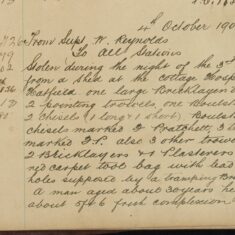 4th October 190
From Supt W. Reynolds
To All Stations
Stolen during the night of the 3rd
from a shed at the Cottage Hosp
Hatfield one large Bricklayers
2 pointing trowels, one Boulst
2 chisels (1 long & 1 short). Boulst
chisels marked F Pratchett, 3
marked F.P. also 3 other trow
2 Bricklayers & 1 Plasterers
red carpet tool bag with lead
holes supposed by a tramping Br
A man aged about 30 years he
about 5ft 6 fresh complexion